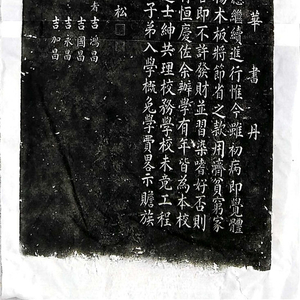 華書丹
繼續進行惟今雖初病即覺體
楊木板將節省之款用濟貧窮家
即不許發財並習染嗜好否則
恒慶佐余辦學有年皆為本校
士紳共理校務學校未竟工程
子弟入學概免學費畧示贍族
松
吉鴻昌
吉國昌
吉永昌
吉加昌